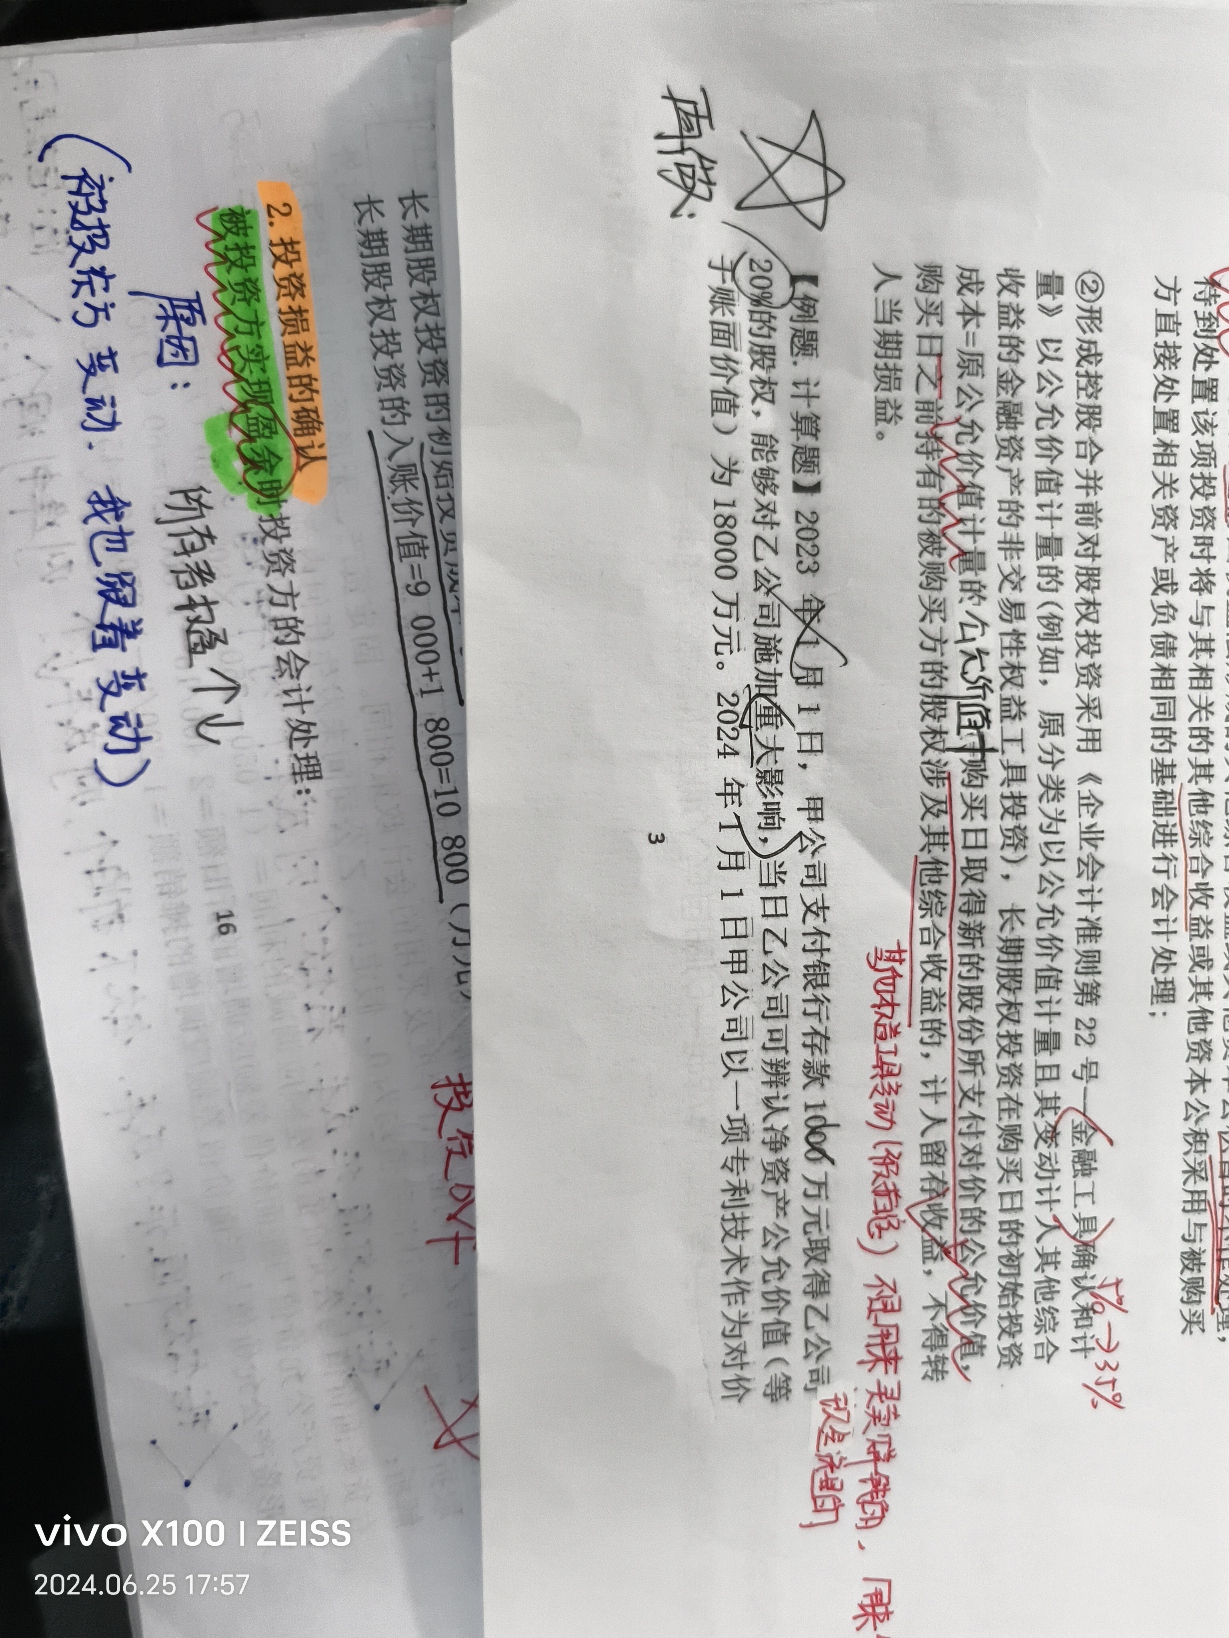 待到处置该项投资时将与其相关的其他综合收益或其他资本公积采用与被购买
方直接处置相关资产或负债相同的基础进行会计处理;
②形成控股合并前对股权投资采用《企业会计准则第 22 号——金融工具确认和计
5%→35%
量》以公允价值计量的(例如,原分类为以公允价值计量且其变动计入其他综合
收益的金融资产的非交易性权益工具投资),长期股权投资在购买日的初始投资
成本=原公允价值计量的公允价值+购买日取得新的股份所支付对价的公允价值,
购买日之前持有的被购买方的股权涉及其他综合收益的,计入留存收益,不得转
人当期损益。
再做:
【例题.计算题】2023 年 1 月 1 日,甲公司支付银行存款 1000 万元取得乙公司
20%的股权,能够对乙公司施加重大影响,当日乙公司可辨认净资产公允价值(等
于账面价值)为 18000 万元。2024 年 1 月 1 日甲公司以一项专利技术作为对价
3
长期股权投资的初始投资成本
长期股权投资的入账价值=9 000+1 800=10 800(万元)
2. 投资损益的确认
被投资方实现盈余时投资方的会计处理:
原因: 所有者权益个↓
(被投资方变动. 我也跟着变动)
16
vivo X100 | ZEISS
2024.06.25 17:57